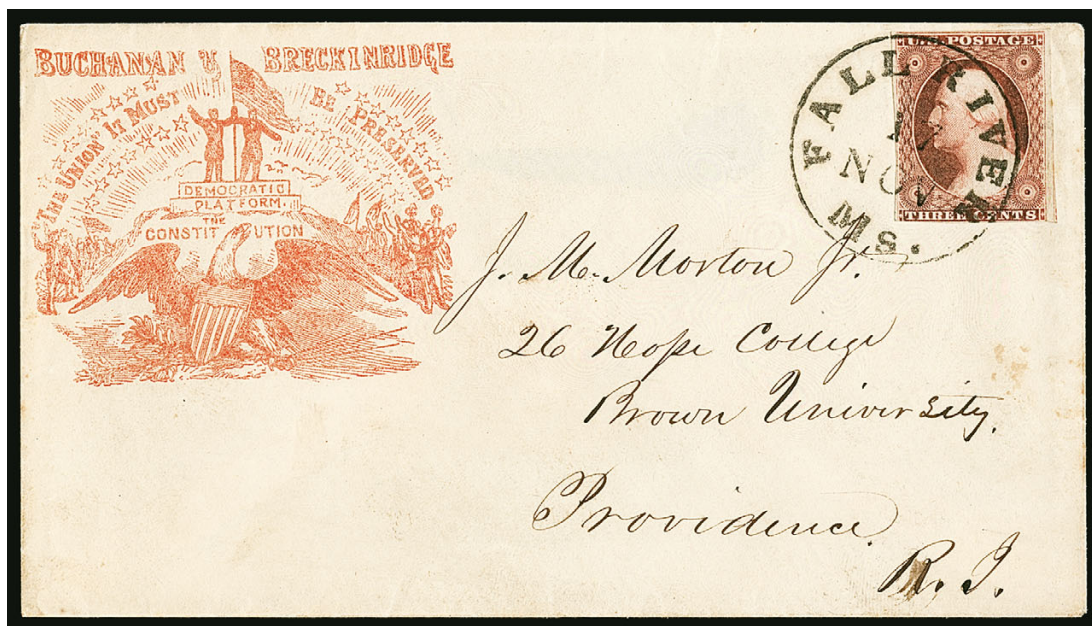 BUCHANAN & BRECKINRIDGE
"THE UNION" IT MUST BE PRESERVED
DEMOCRATIC
PLATFORM.
THE
CONSTITUTION
FALL RIVER
NOV
MS.
U.S. POSTAGE
THREE CENTS
J. M. Morton Jr.
26 Hope College
Brown University.
Providence
R. I.